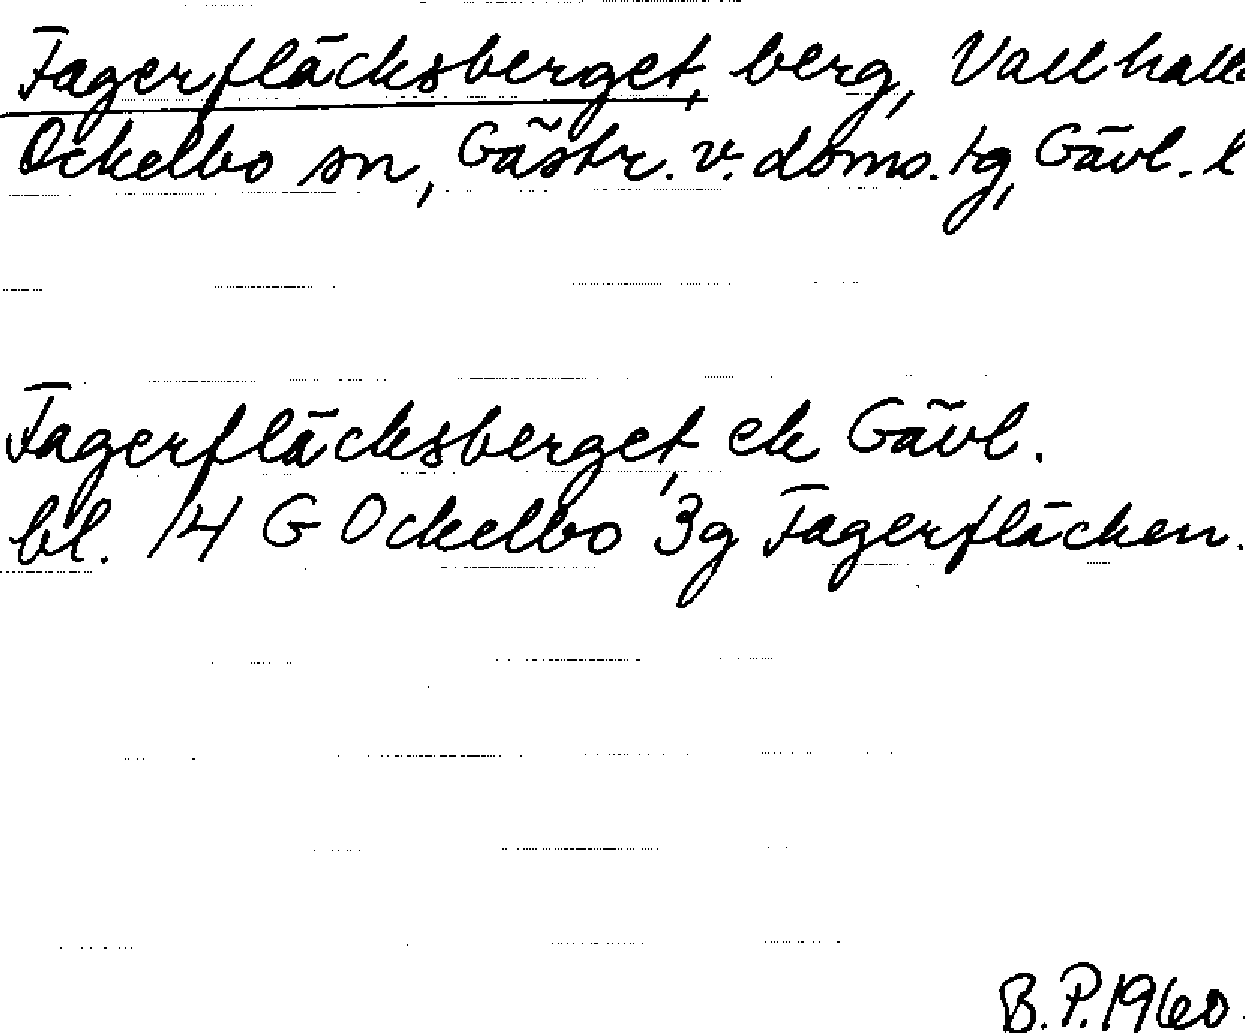 Fagerfläcksberget, berg, Vallhall
Ockelbo sn, Gästr. v. doms. tg, Gävl. l
Fagerfläcksberget, ek Gävl.
bl. 14 G Ockelbo 3g Fagerfläcken.
B.P. 1960.